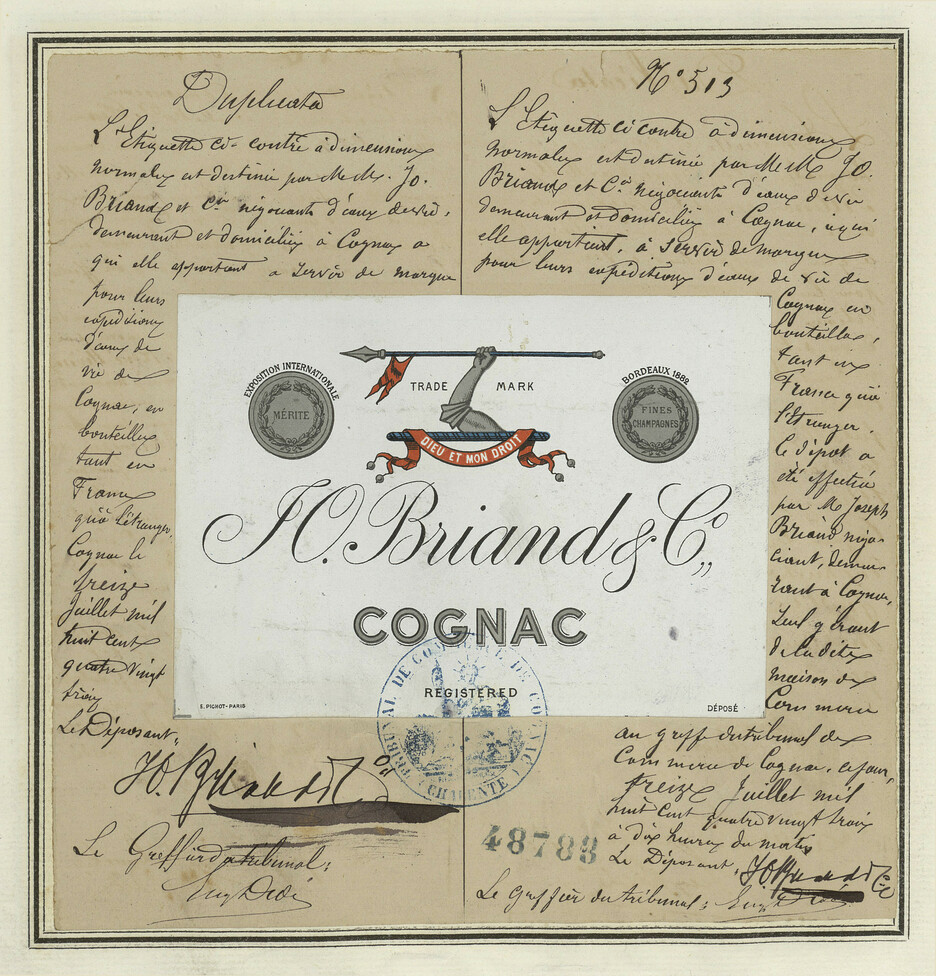 Duplicata
L'Etiquette ci-contre à dimensions
normales est destinée par M.M. Jo.
Briand et Cie négociants d'eaux de vie,
demeurant et domiciliés à Cognac a
qui elle appartient a servir de marque
pour leurs
expéditions
d'eaux de
vie de
Cognac, en
bouteilles
tant en
France
qu'à l'étranger,
Cognac le
treize
Juillet mil
huit cent
quatre vingt
trois
Le Déposant,
JO. Briand & Co
Le Greffier du tribunal:
No 513
L'Etiquette ci contre à dimensions
normales est destinée par M.M. Jo.
Briand et Cie négociants d'eaux de vie
demeurant et domiciliés à Cognac, à qui
elle appartient, à servir de marque
pour leurs expéditions d'eaux de vie de
Cognac en
bouteilles,
tant en
France qu'à
l'étranger.
Le dépôt a
été effectué
par M. Joseph
Briand négo-
ciant, demeu-
rant à Cognac,
seul gérant
de la dite
maison de
Commerce
au greffe du tribunal de
Commerce de Cognac, ce jour
treize Juillet mil
huit cent quatre vingt trois
à dix heures du matin
Le Déposant, JO. Briand & Cie
Le Greffier du tribunal:
EXPOSITION INTERNATIONALE
MÉRITE
TRADE MARK
BORDEAUX 1882
FINES
CHAMPAGNES
DIEU ET MON DROIT
JO. Briand & Co,,
COGNAC
REGISTERED
E. PICHOT-PARIS
DÉPOSÉ
TRIBUNAL DE COMMERCE DE COGNAC
CHARENTE
48788